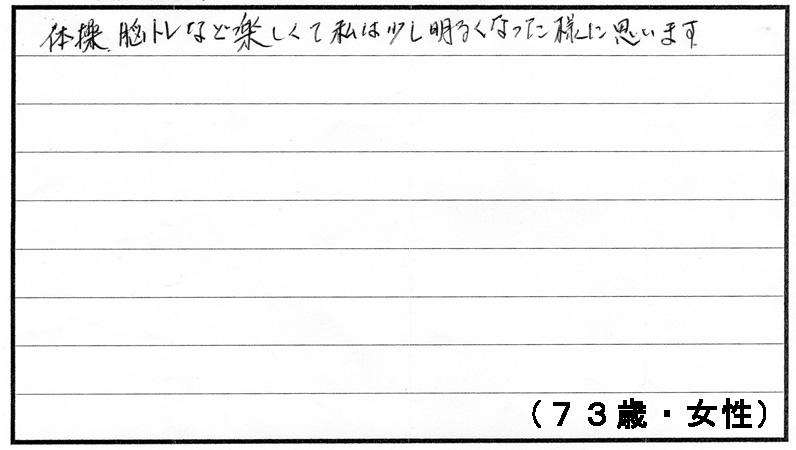 体操、脳トレなど楽しくて私は少し明るくなった様に思います
（７３歳・女性）